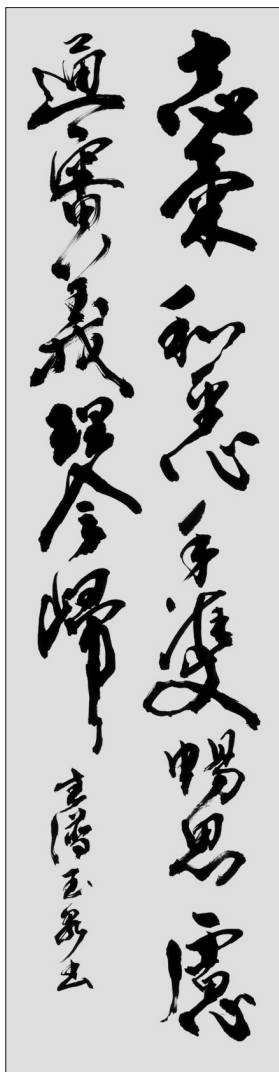 志氣和平心手雙暢思慮
通審義理會歸
書譜玉泉書